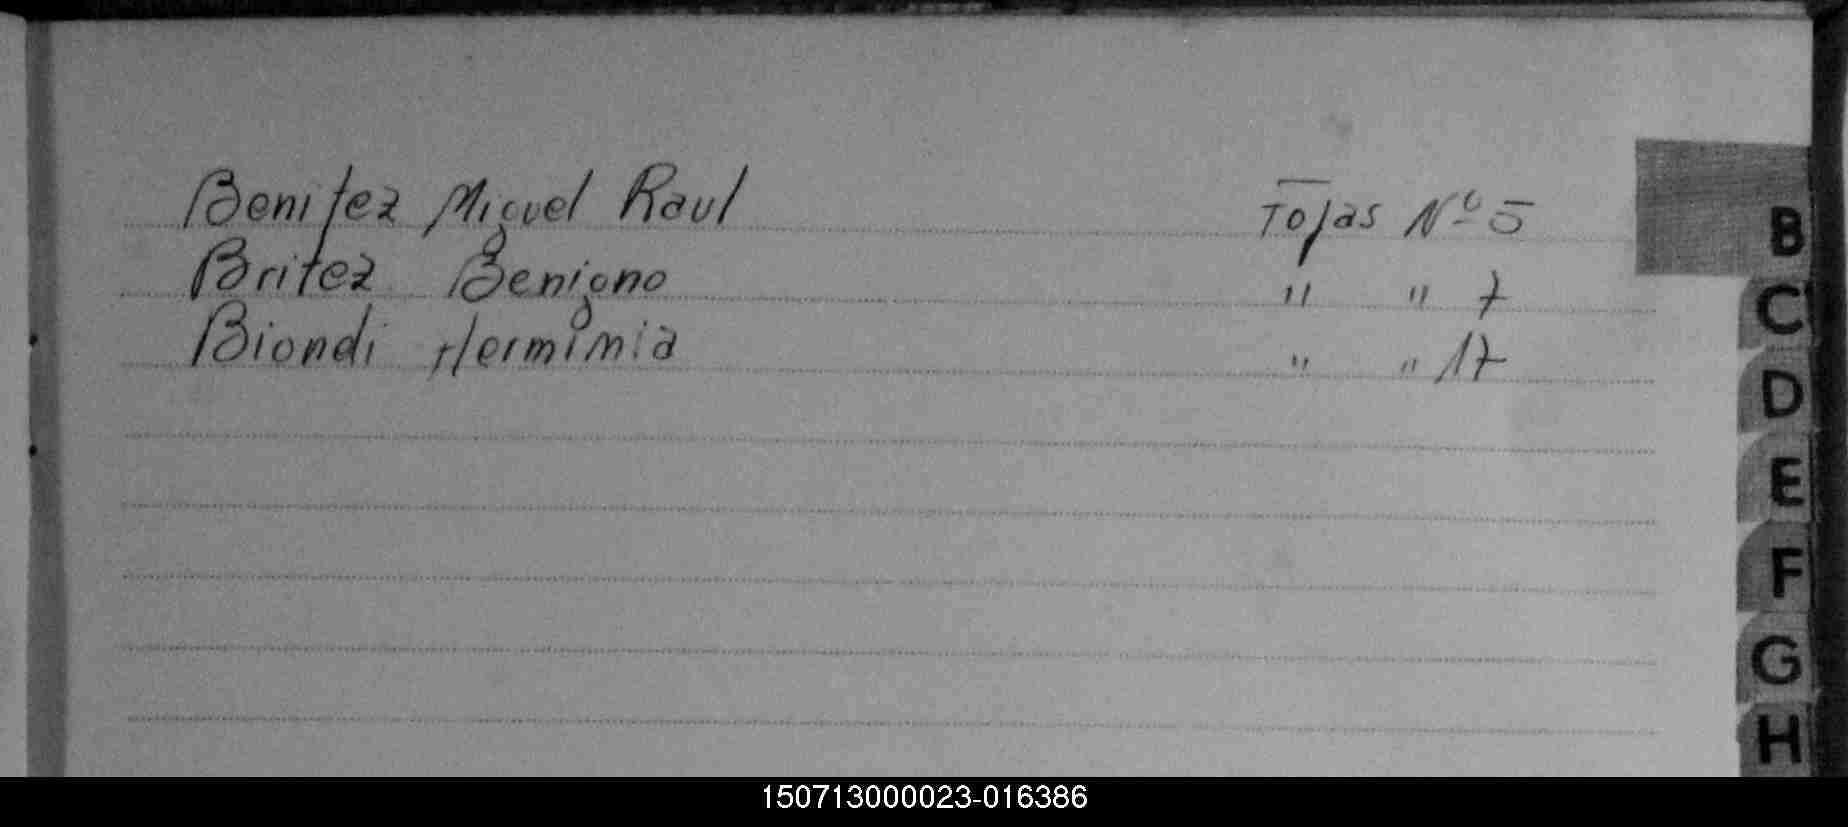 Benitez Miguel Raul Fojas Nº 5
Britez Benigno " " 7
Biondi Herminia " " 17
B
C
D
E
F
G
H
150713000023-016386